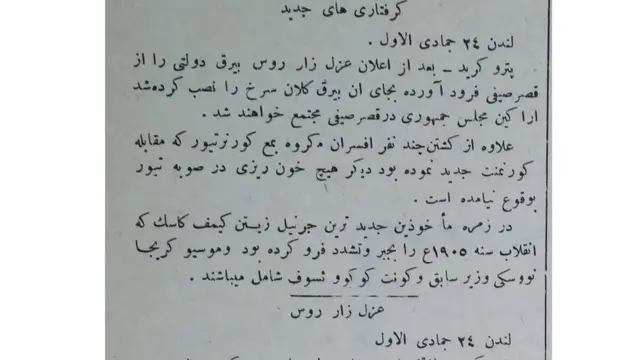 گرفتاری های جدید
لندن ۲۴ جمادی الاول .
پترو کرید ـ بعد از اعلان عزل زار روس بیرق دولتی را از
قصرصیفی فرود آورده بجای ان بیرق کلان سرخ را نصب کرده‌شد
ارا کین مجلس جمهوری درقصرصیفی مجتمع خواهند شد .
علاوه از کشتن‌چند نفر افسران مکروه بمع کورنرتیور که مقابله
کورنمنت جدید نموده بود دیکر هیچ خون ریزی در صوبه تیور
بوقوع نیامده است .
در زمره مأ خوذین جدید ترین جرنیل زیستن کیمف کاسك که
انقلاب سنه ۱۹۰۵ع را بجبر وتشدد فرو کرده بود وموسیو کریجا
نووسکی وزیر سابق وکونت کوکوو تسوف شامل میباشند .
عزل زار روس
لندن ۲۴ جمادی الاول